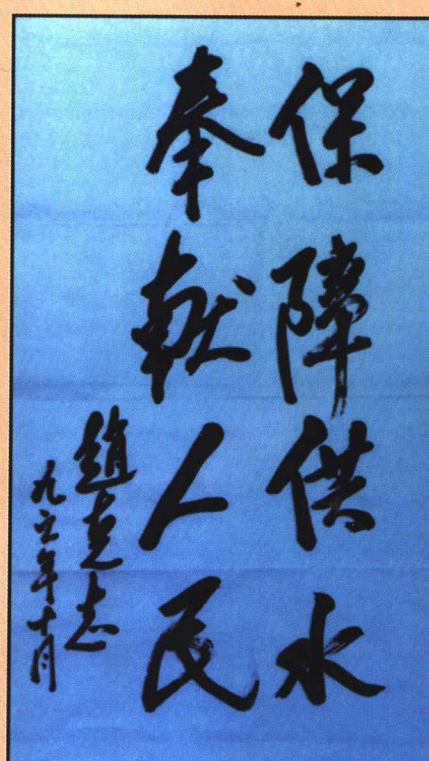 保障供水
奉献人民
趙克志
九五年十月